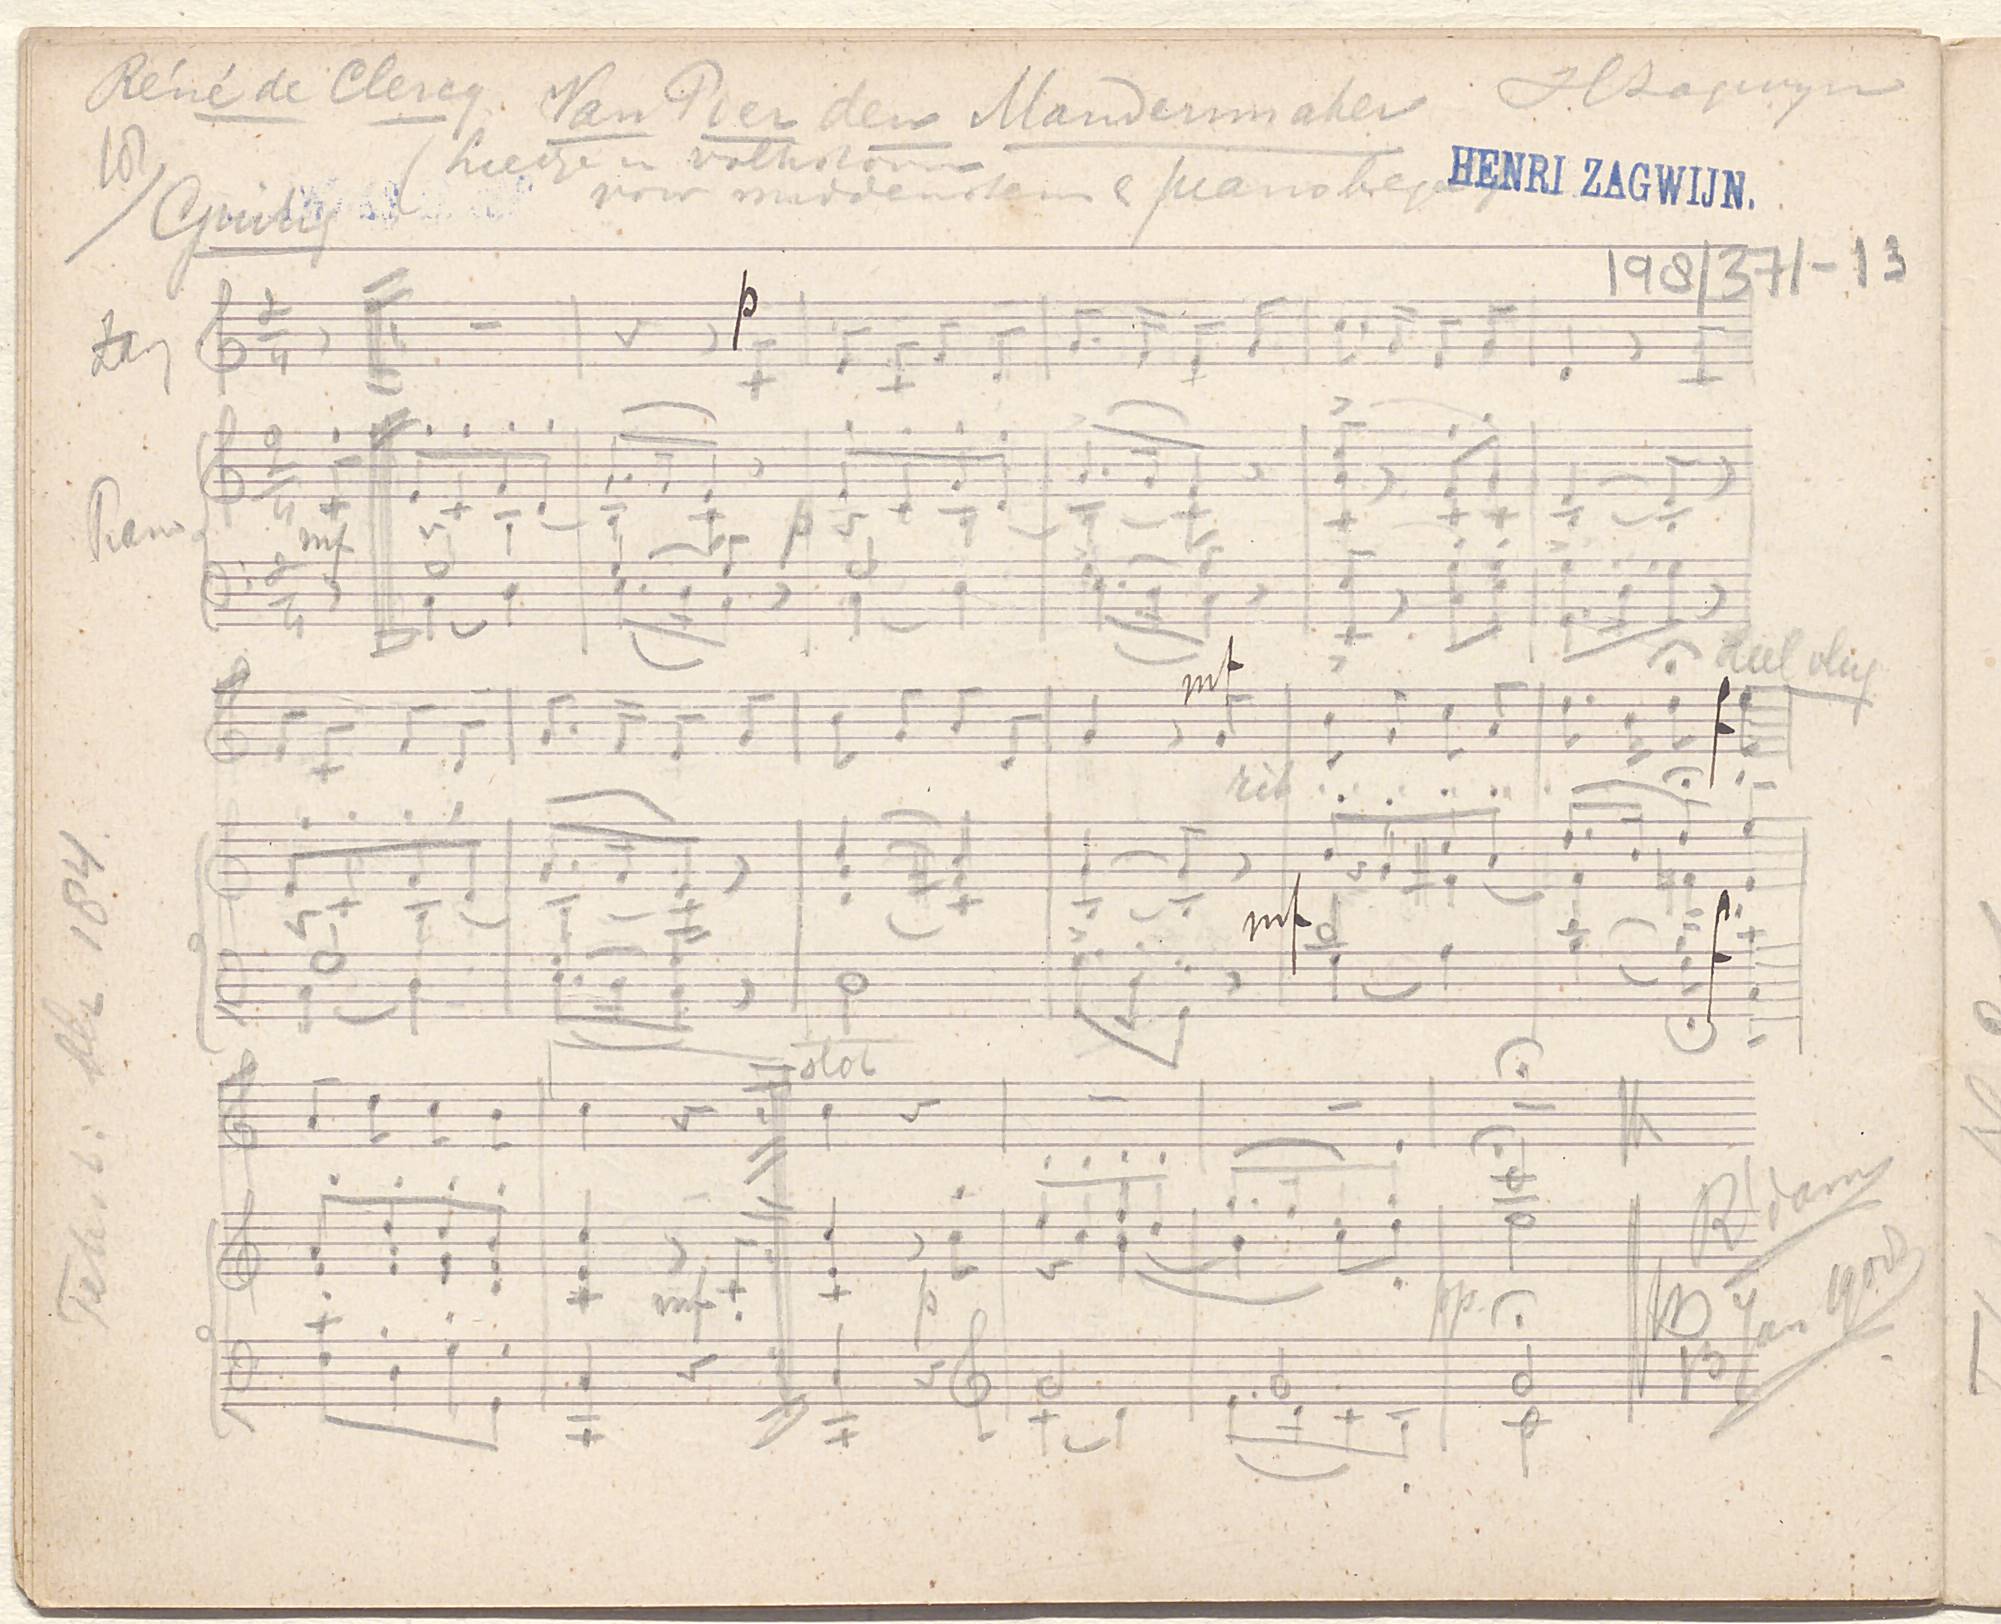 Réné de Clercq Van Pier den Mandenmaker H Zagwijn
(liedje in volkstoon
voor middenstem & pianobegg
HENRI ZAGWIJN.
198/37/-13
Zang
p
Piano
mf
p
heel vlug
mf
rit
mf
slot
mf
p
pp.
R'dam
13 Jan 1908
Tekst: blz 184